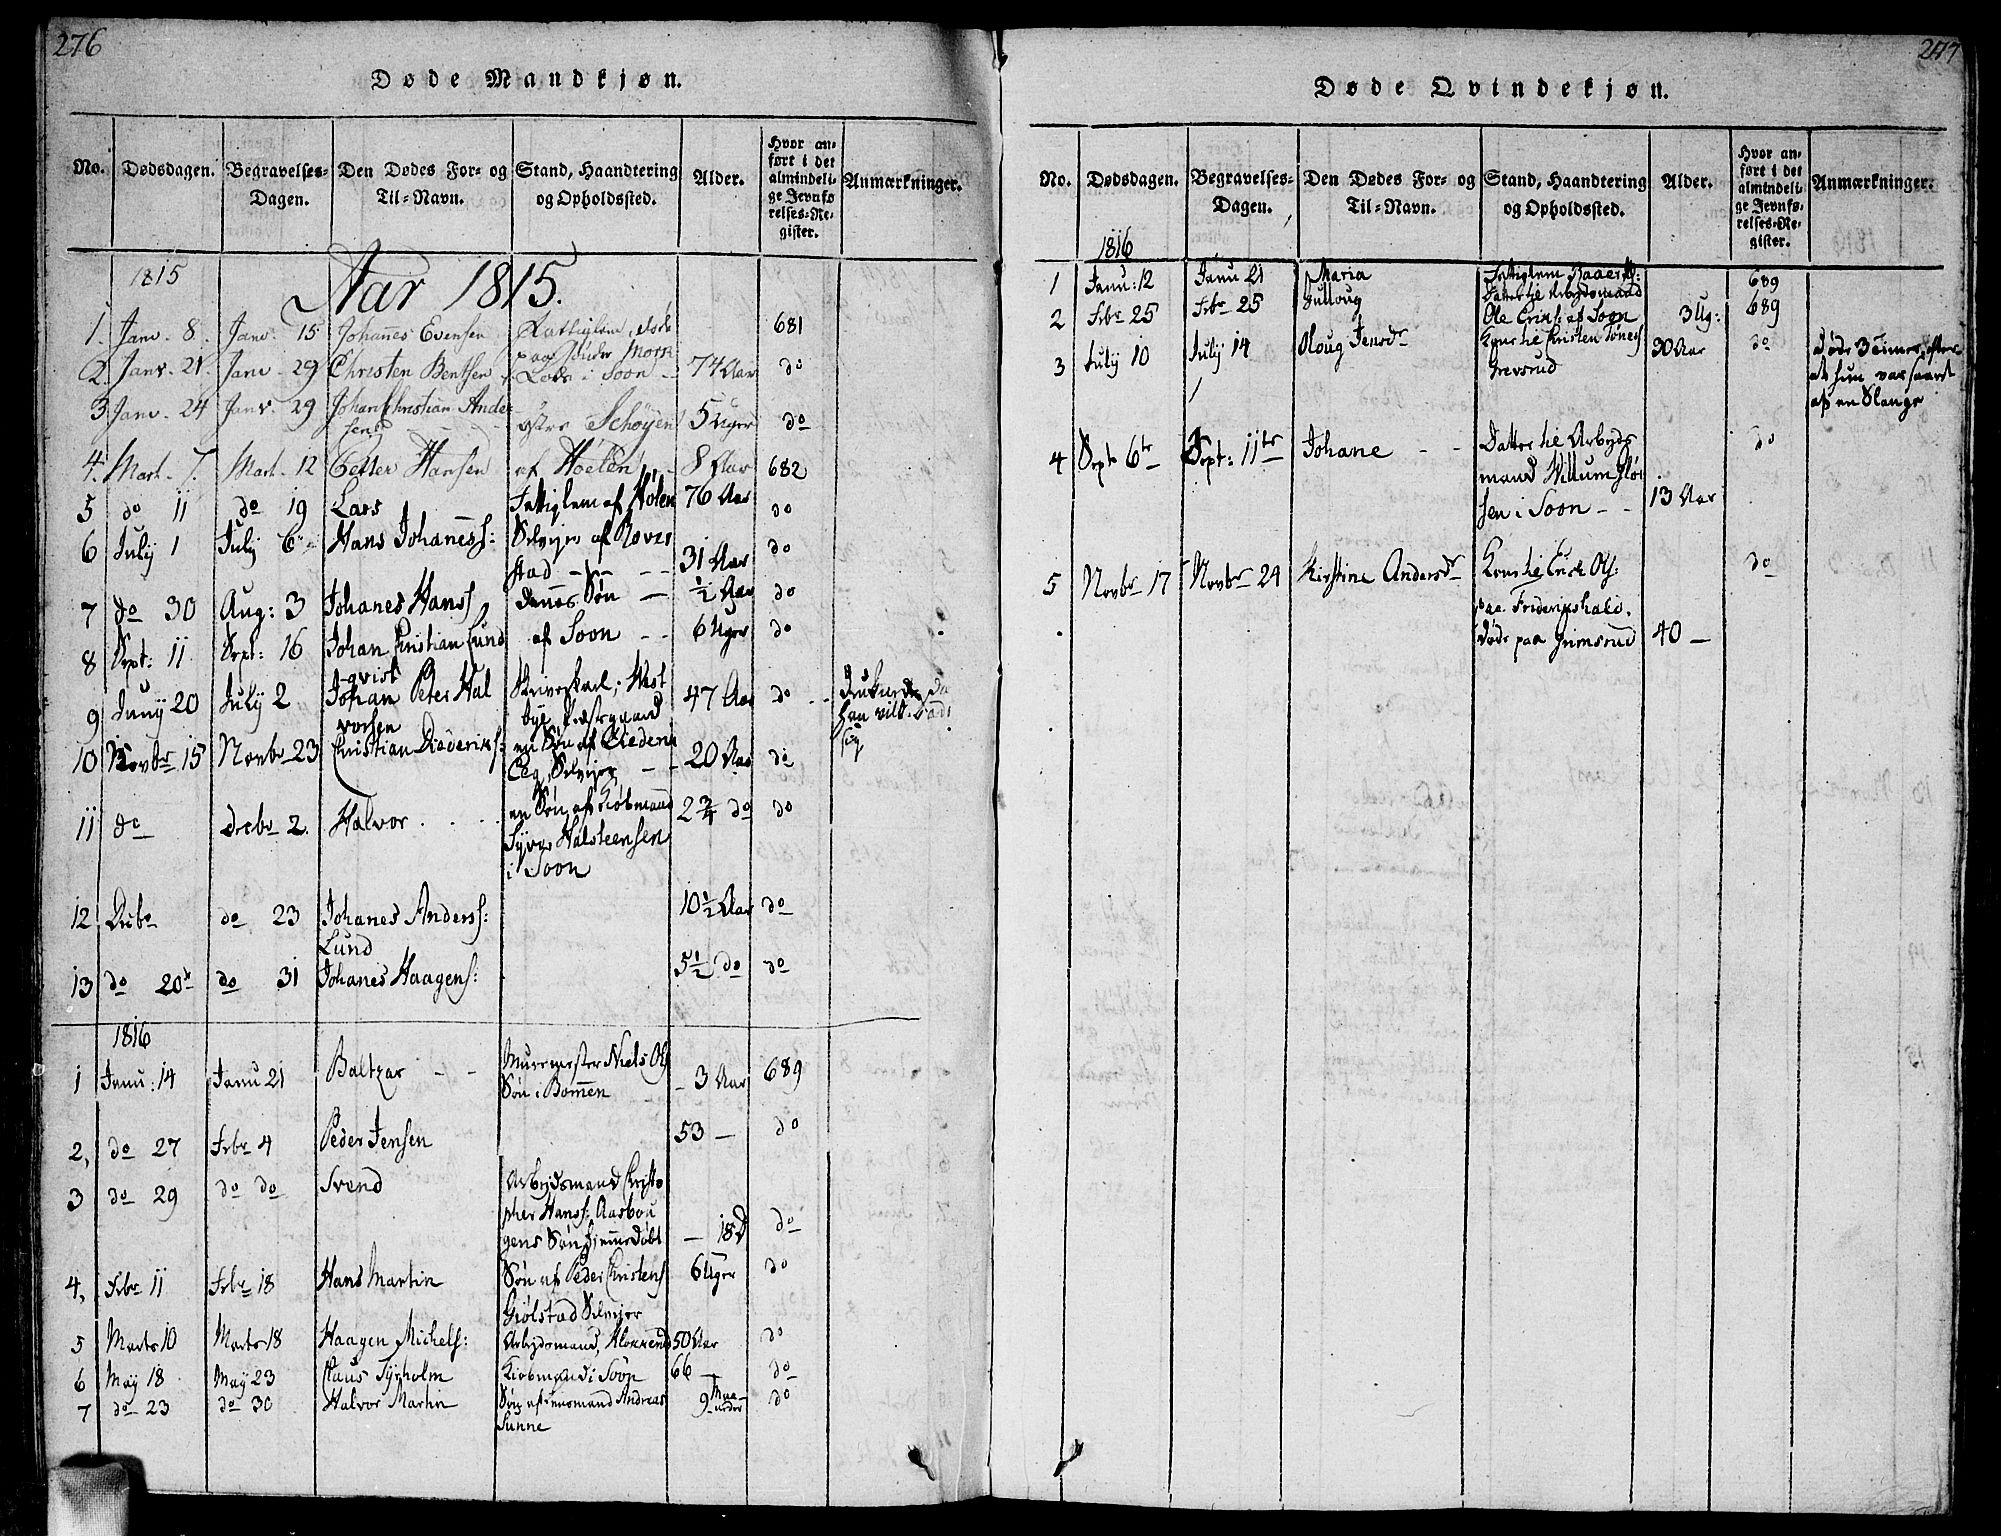 276
Døde Mandkjøn.
No. Dødsdagen. Begravelses-Dagen. Den Dødes For- og Til-Navn. Stand, Haandtering og Opholdssted. Alder. Hvor anført i det almindelige Jevnførelses-Register. Anmærkninger.
1815
Aar 1815.
1. Janv. 8. Janv. 15 Johannes Evensen 681
2. Janv. 21. Janv. 29 Christen Bentsen i Soon 74 Aar do
3. Janv. 24 Janv. 29 Johan Christian Ander
sen Schøyen 5 Uger do
4. Mart. 7. Mart. 12 Petter Hansen af Hoelen 8 Aar 682
5 do 11 do 19 Lars Fattiglem af Hølen 76 Aar do
6 July 1 July 6 Hans Johaness: Selveier af Rover
stad 31 Aar do
7 do 30 Aug: 3 Johanes Hanss dennes Søn ½ Aar do
8 Sept: 11 Sept: 16 Johan Christian Lund
qvist af Soon 6 Uger do
9 Juny 20 July 2 Johan Peter Hal
vorsen Skriverkarl i West
bye Præstegaard 47 Aar do druknede da
han vilde bade
sig
10 Novbr 15 Novbr 23 Christian Dideriks: en Søn af
Selveier 20 Aar do
11 do Decbr 2. Halvor en Søn af Kiøbmand
Syver Halsteensen
i Soon 2¾ do do
12 Decbr do 23 Johanes Anderss:
Lund 10½ Aar do
13 do 20de do 31 Johanes Haagens: 5½ do do
1816
1 Janu: 14 Janu 21 Baltzar Muremester Niels Ols
Søn i Bommen 3 Aar 689
2, do 27 Febr 4 Peder Jensen 53 — do
3 do 29 do do Svend Arbejdsmand Christo
pher Hanss: Aasbou
gens Søn hiemmedøbt — 18 D do
4, Febr 11 Febr 18 Hans Martin Søn af Peder Christens
Giølstad Selveier 6 Uger do
5 Marts 10 Marts 18 Haagen Michels: Arbejdsmand, 50 Aar do
6 May 18 May 23 Claus Tyrholm Kiøbmand i Soon 66 — do
7 do 23 do 30 Halvor Martin Søn af Lensmand Andreas
Sunne 9 Maa
neder do
277
Døde Qvindekjøn.
No. Dødsdagen. Begravelses-Dagen. Den Dødes For- og Til-Navn. Stand, Haandtering og Opholdssted. Alder. Hvor anført i det almindelige Jevnførelses-Register. Anmærkninger.
1816
1 Janu: 12 Janu 21 Maria Fattiglem 689
2 Febr 25 Febr 25 Gulloug Datter til Arbejdsmand
Ole Eriks: af Soon 3 Ug: 689
3 July 10 July 14 Oloug Jensdr Kone til Christen Tøness
Grevsrud 30 Aar do døde 3 Timer efter
at hun var saaret
af en Slange
4 Sept 6te Sept: 11te Johane Datter til Arbejds
mand Willum
sen i Soon 13 Aar do
5 Novbr 17 Novbr 24 Kirstine Andersdr Kone til Erich Ols:
paa Frideriks hald.
døde paa Grimsrud 40 — do